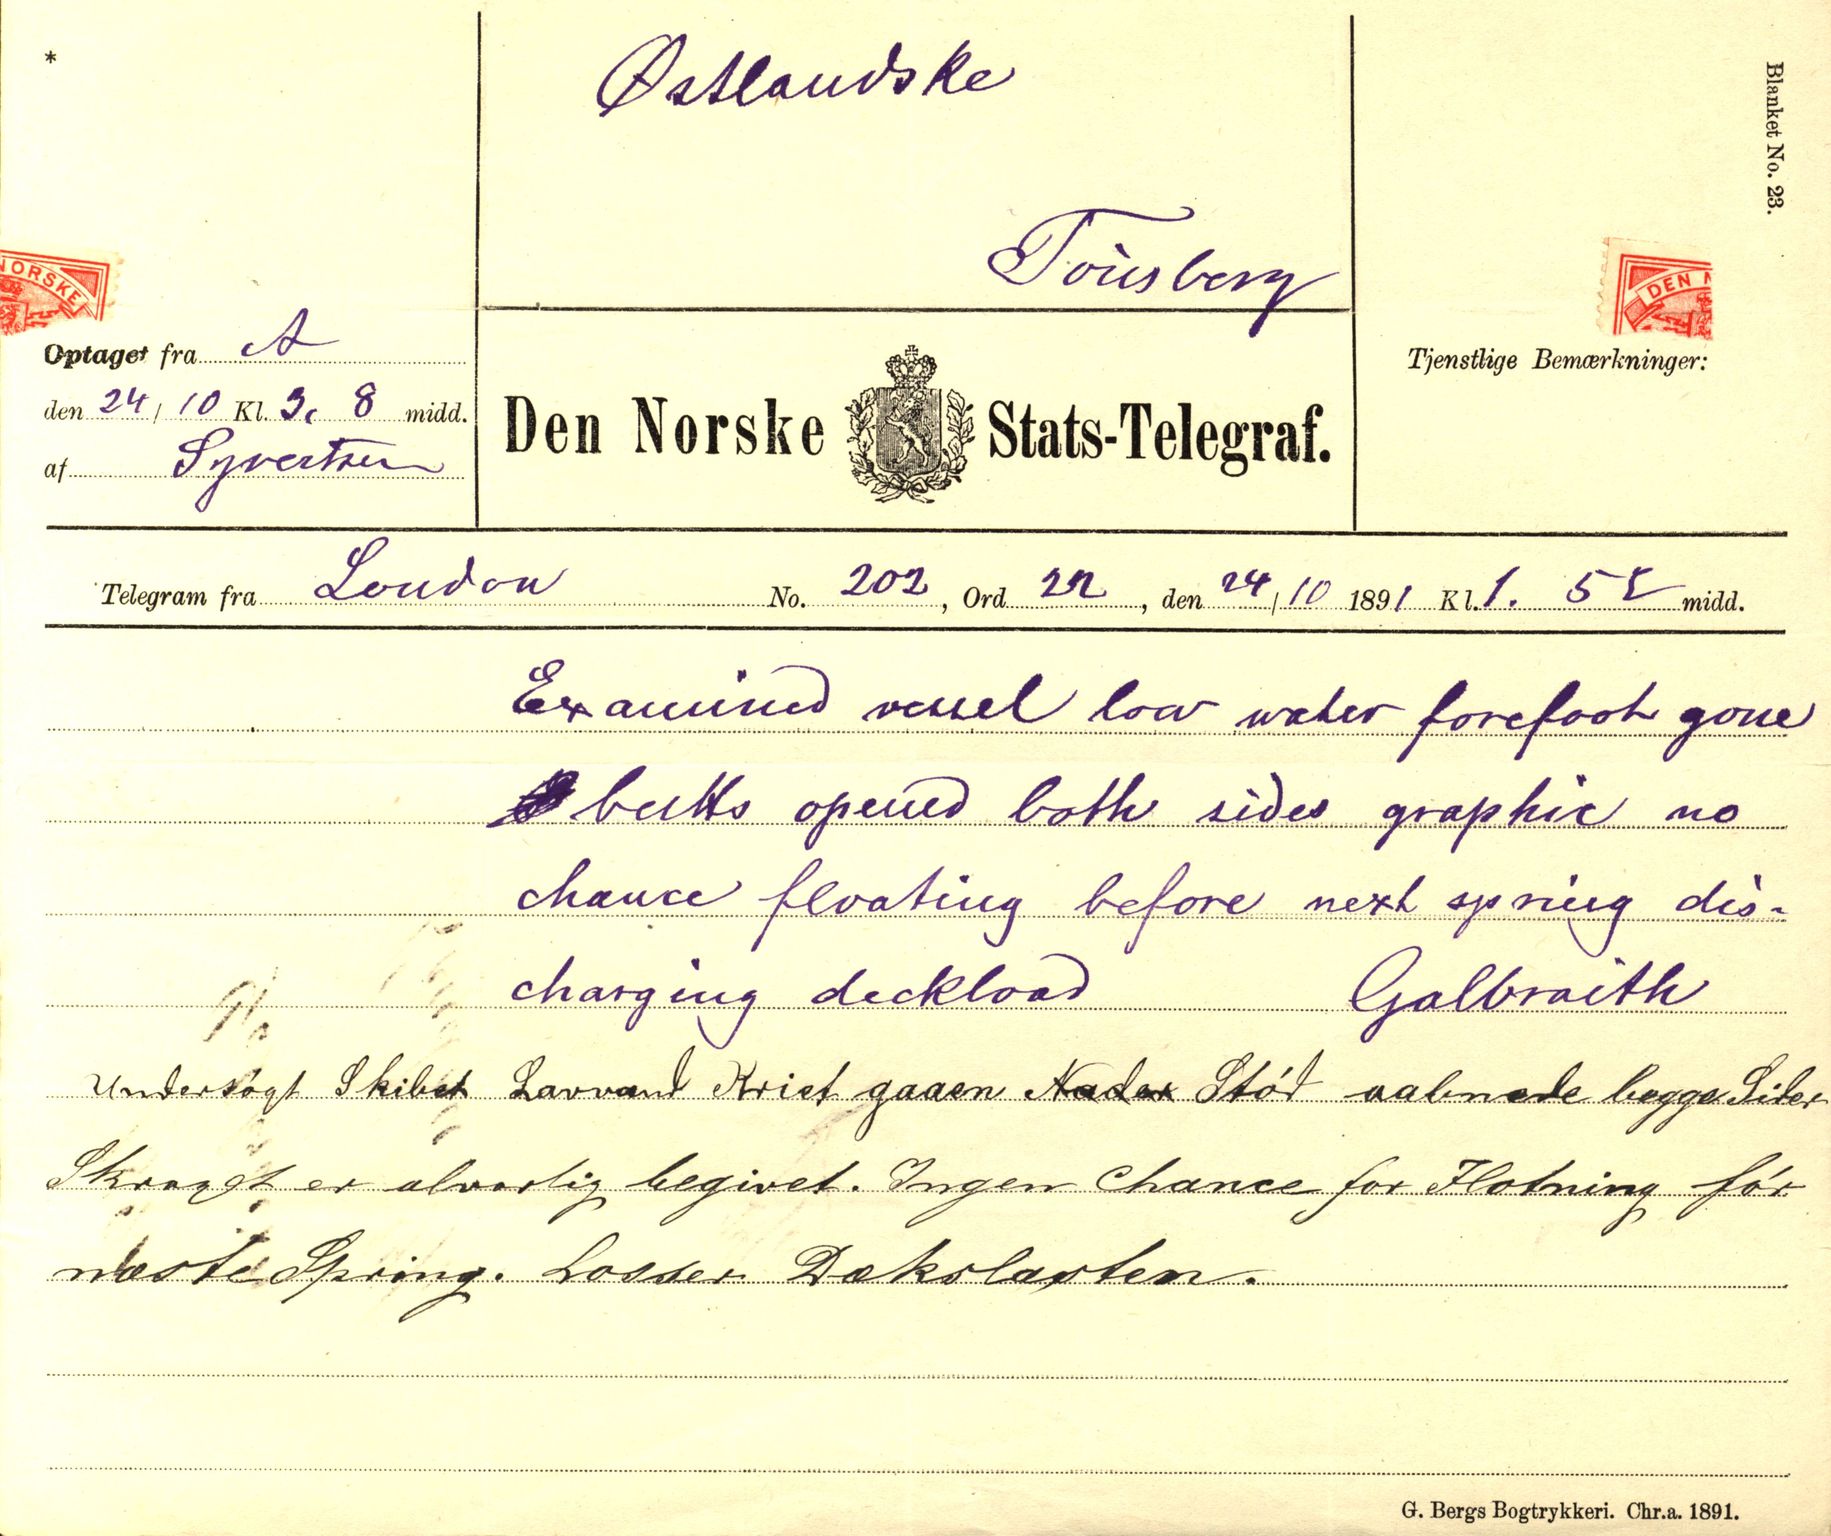 *
Østlandske
Tønsberg
Blanket No. 23.
NORSKE
DEN N
Optaget fra A
den 24/10 Kl. 3. 8 midd.
af Syvertsen
Den Norske Stats-Telegraf.
Tjenstlige Bemærkninger:
Telegram fra London No. 202, Ord 22, den 24/10 1891 Kl. 1. 55 midd.
Examined vessel low water forefoot gone
butts opened both sides graphic no
chance floating before next spring dis-
charging deckload Galbraith
Undersøgt Skibet Lavvand Kriet gaaen Nader Stød aabnede begge Sider
Skroget er alvorlig begivet. Ingen Chance for Flotning før
næste Spring. Losser Dækslasten.
G. Bergs Bogtrykkeri. Chr.a. 1891.